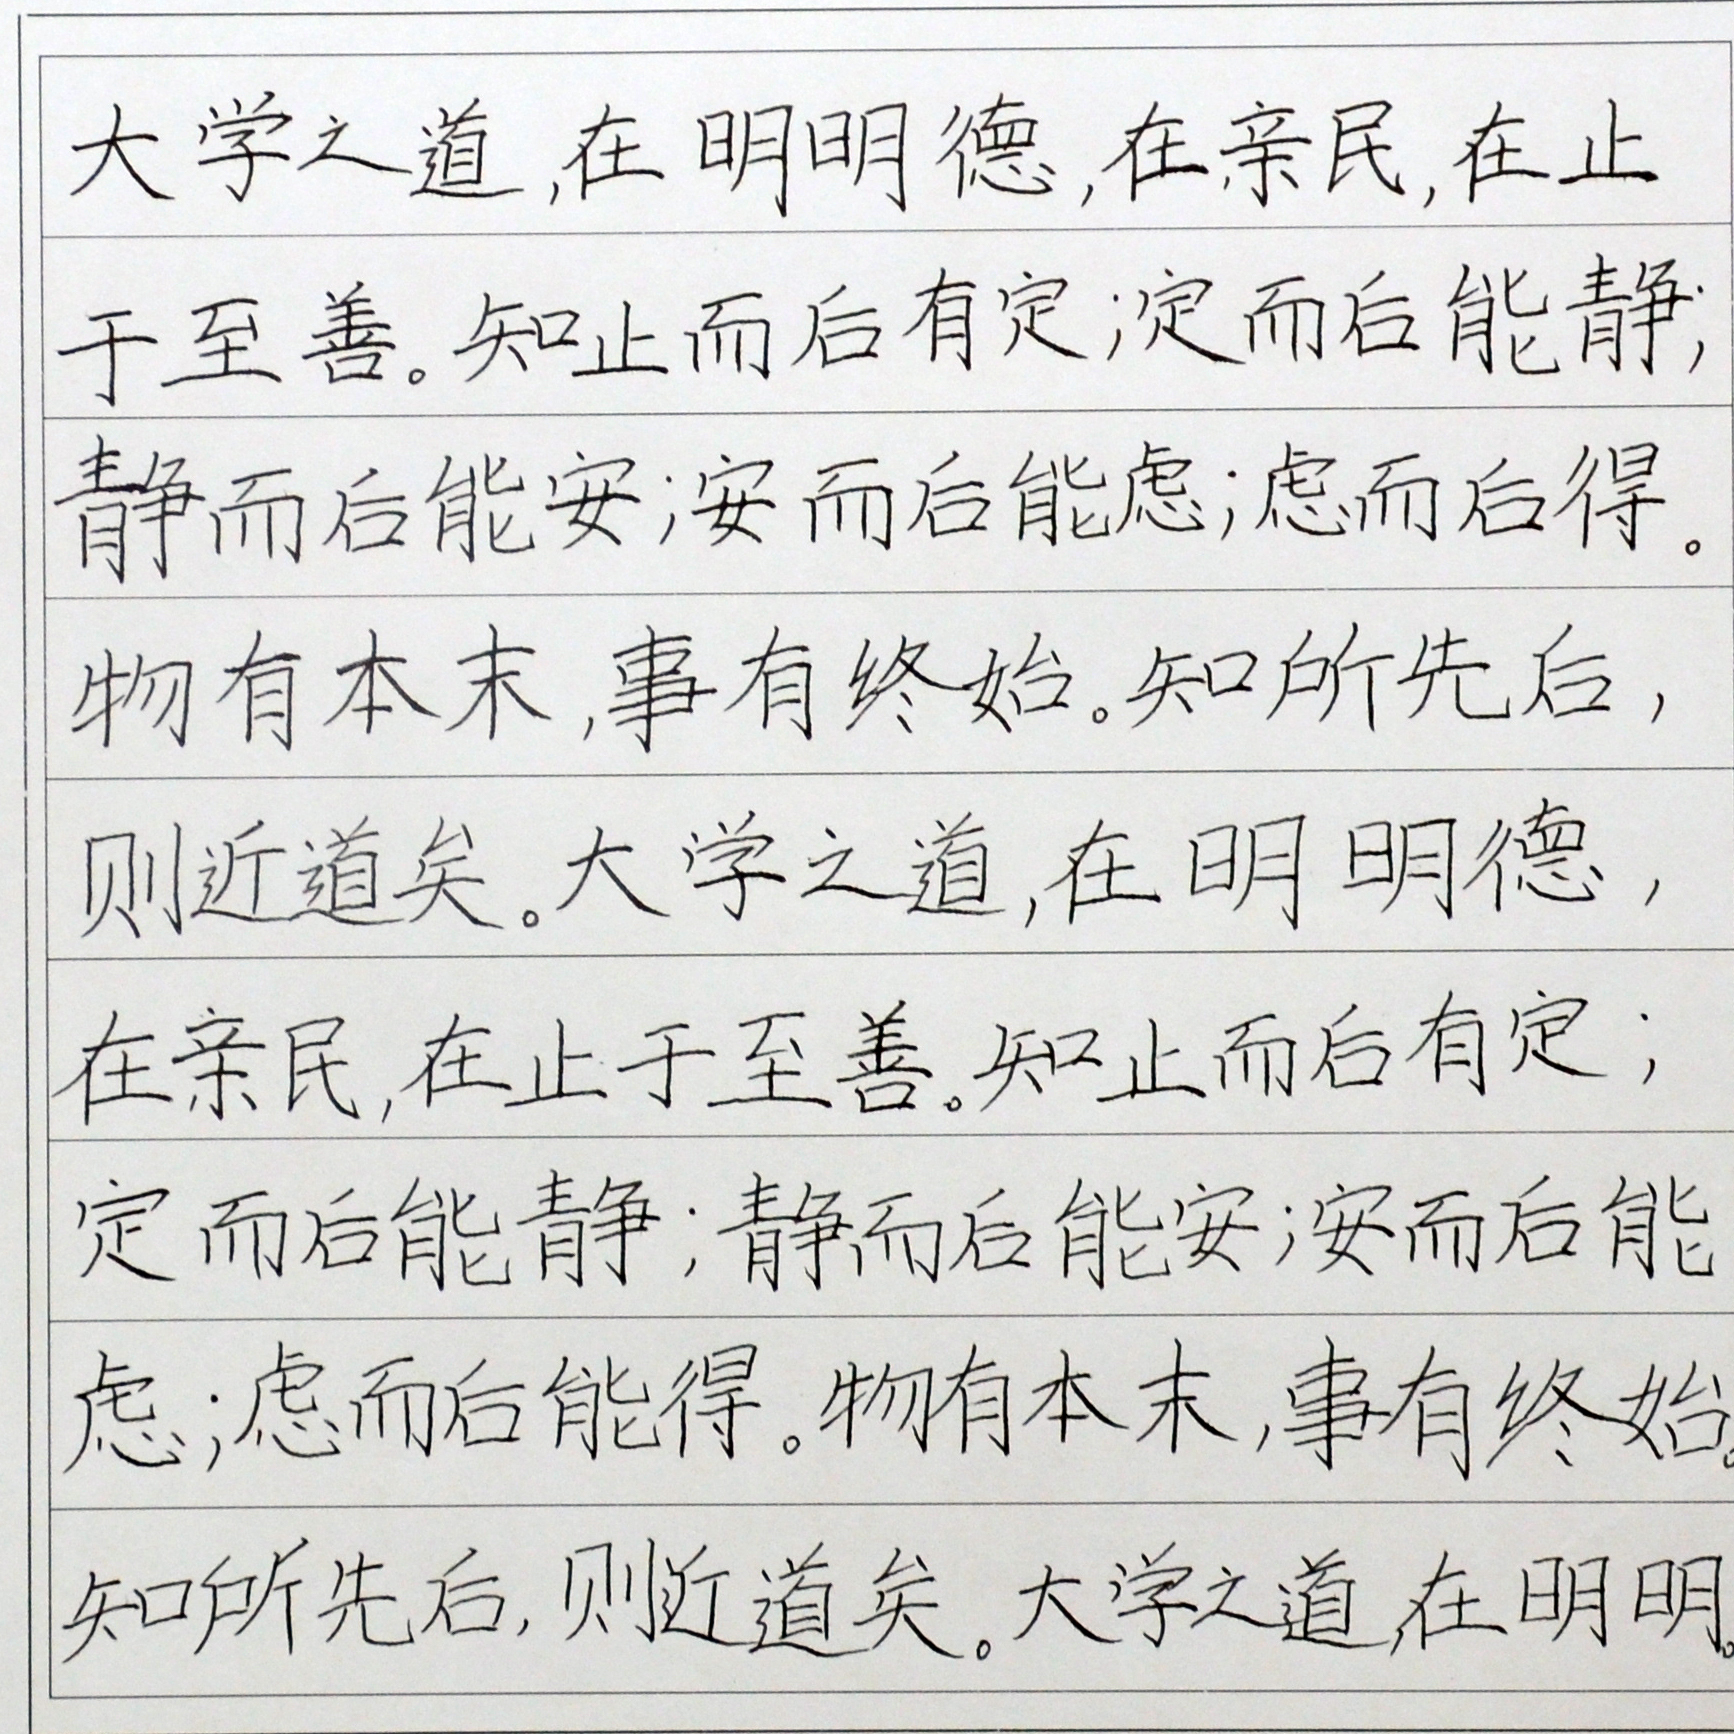 大学之道,在明明德,在亲民,在止
于至善。知止而后有定;定而后能静;
静而后能安;安而后能虑;虑而后得。
物有本末,事有终始。知所先后,
则近道矣。大学之道,在明明德,
在亲民,在止于至善。知止而后有定;
定而后能静;静而后能安;安而后能
虑;虑而后能得。物有本末,事有终始。
知所先后,则近道矣。大学之道,在明明。